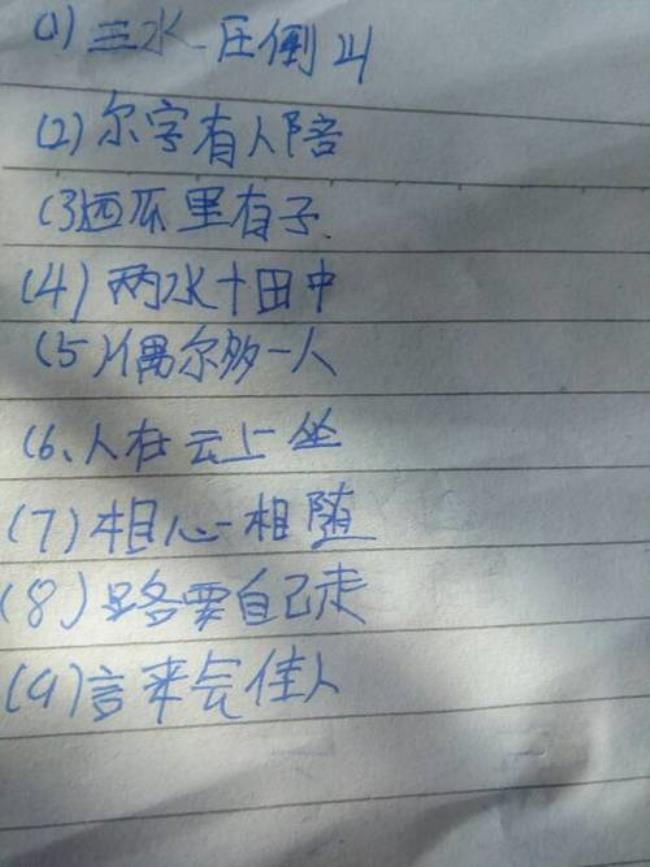 (1) 三水压倒山
(2) 尔字有人陪
(3)西瓜里有子
(4) 两水十田中
(5) 偶尔多一人
(6、人在云上坐
(7) 相心相随
(8) 路要自己走
(9) 言来会佳人